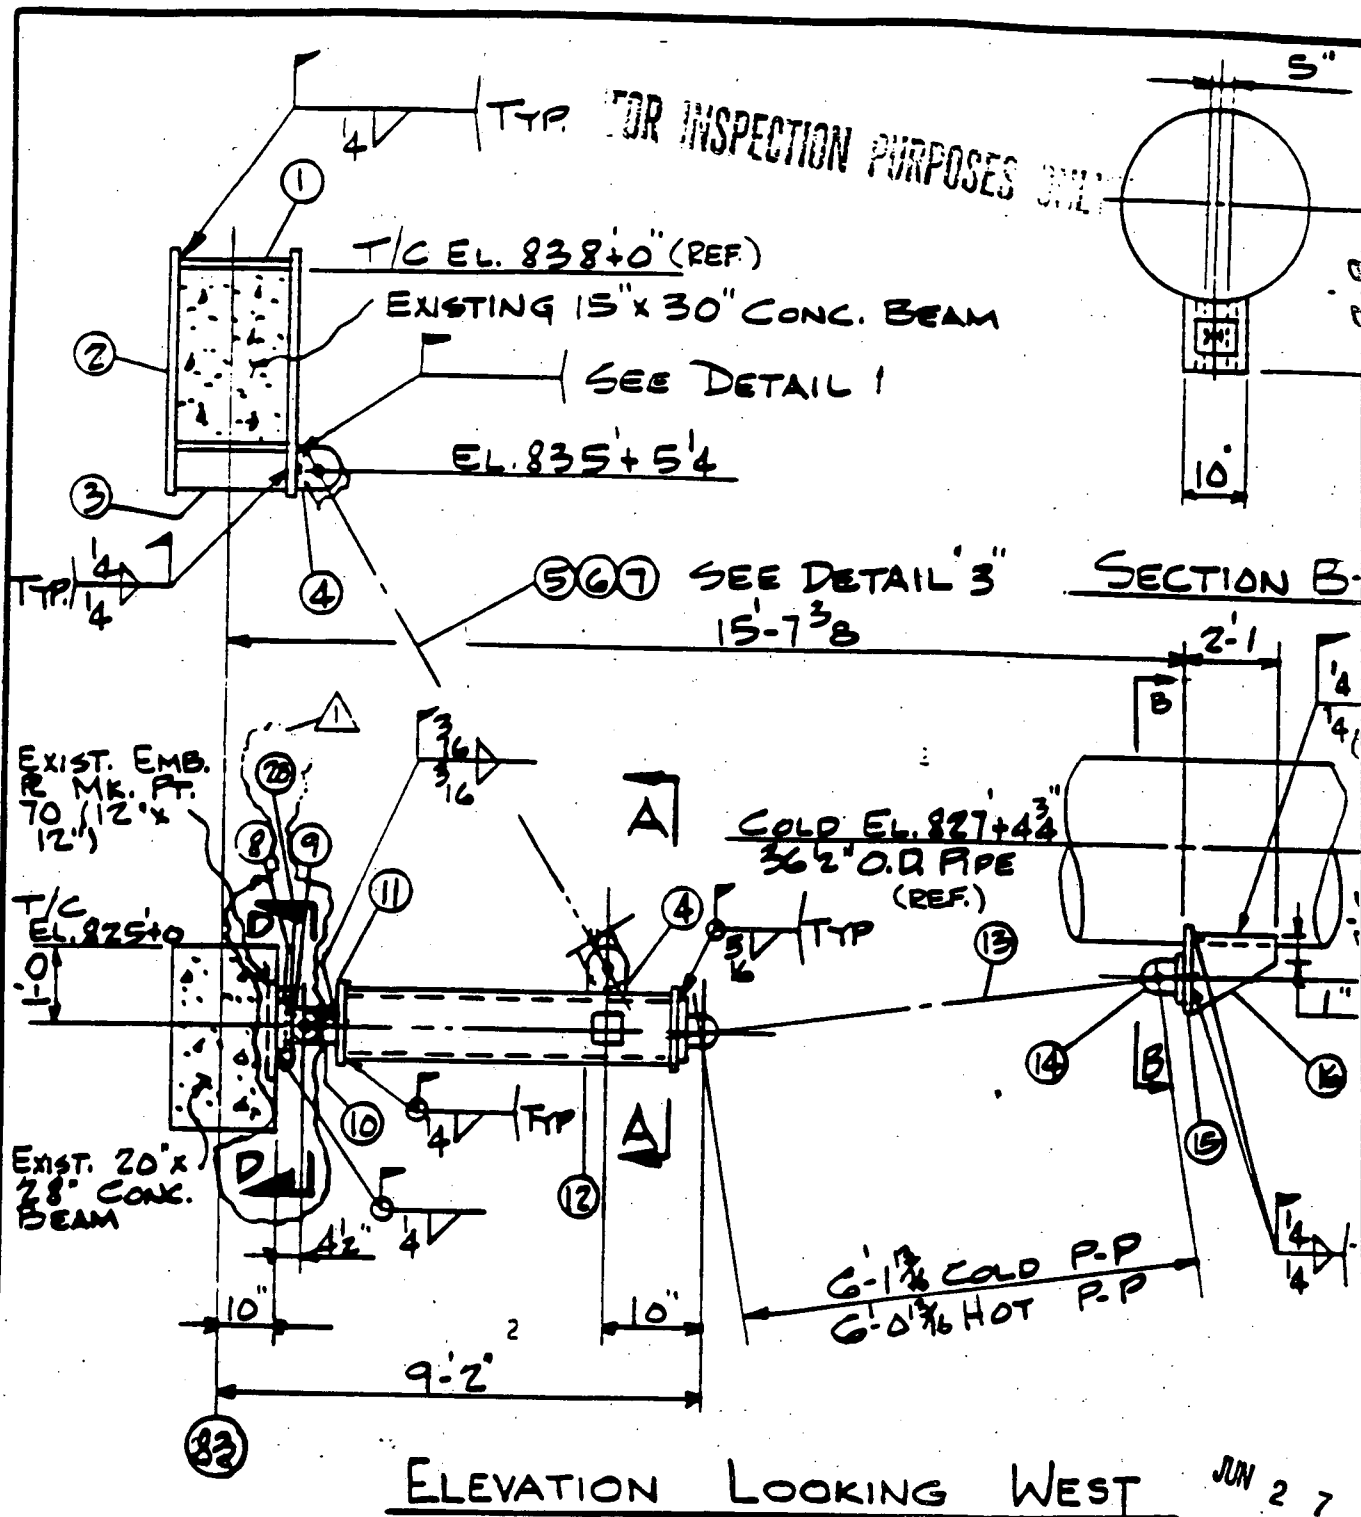 5"
1/4
TYP.
FOR INSPECTION PURPOSES ONLY
1
T/C EL. 838'+0" (REF.)
EXISTING 15" x 30" CONC. BEAM
2
SEE DETAIL 1
EL. 835'+ 5 1/4
3
10"
TYP.
1/4
1/4
4
5 6 7
SEE DETAIL "3"
SECTION B-
15'-7 3/8
2'-1
1/4
1/4
B
1
3/16
3/16
EXIST. EMB.
PL MK. PT.
70 (12" x
12")
20
8
9
A
COLD EL. 827'+4 3/4"
36 1/2" O.D. PIPE
(REF.)
11
4
T/C
EL. 825'+0
D
1'-0
3/16
TYP
13
1"
14
B
16
10
1/4
TYP
A
15
EXIST. 20" x
28" CONC.
BEAM
D
12
4 1/2"
1/4
1/4
1/4
6'-1 13/16 COLD P-P
6'-0 13/16 HOT P-P
10"
2
10"
9'-2"
83
ELEVATION LOOKING WEST
JUN 2 7